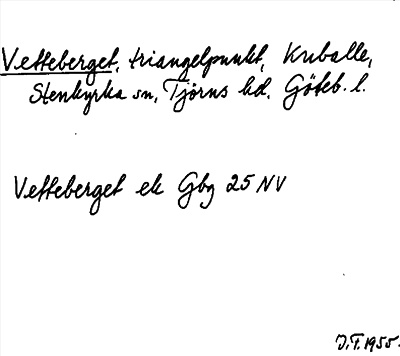 Vetteberget, triangelpunkt, Kuballe,
Stenkyrka sn, Tjörns hd. Göteb. l.
Vetteberget ek Gbg 25 NV
J.T. 1955.